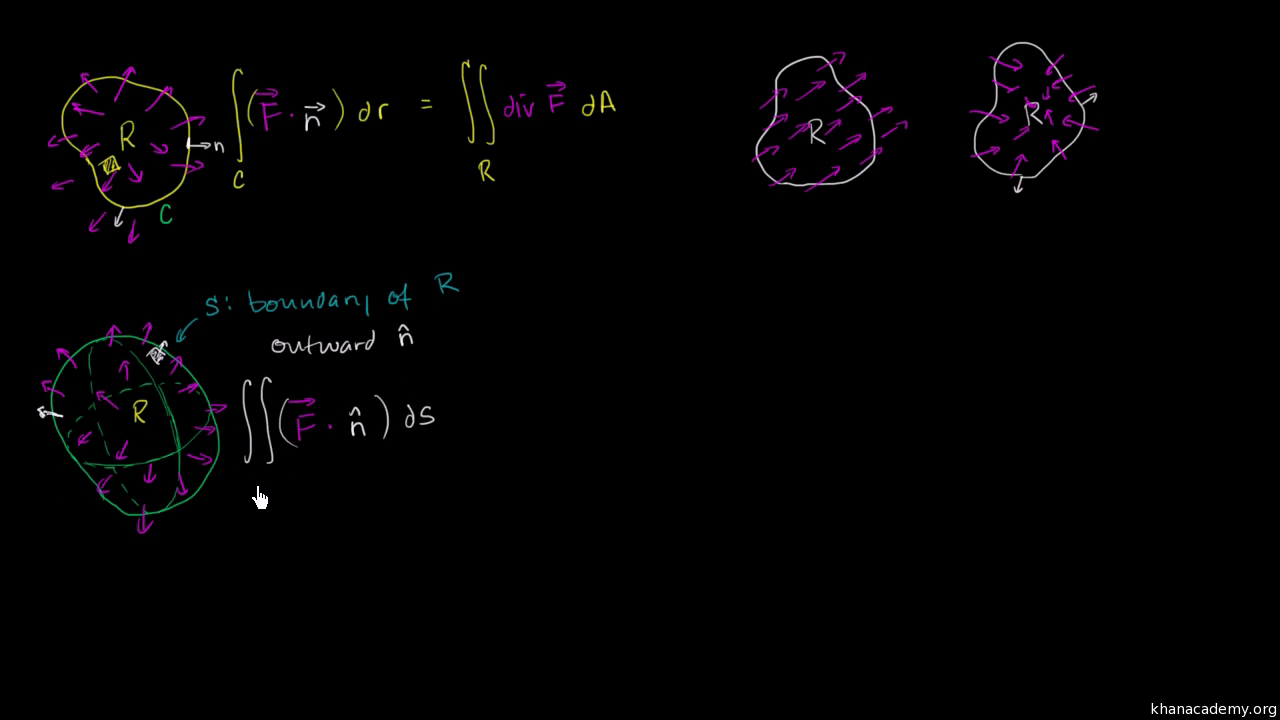 R
n
C
∫ ( F⃗ · n⃗ ) dr = ∬ div F⃗ dA
C
R
R
R
S: boundary of R
outward n̂
R
∬ ( F⃗ · n̂ ) dS
khanacademy.org